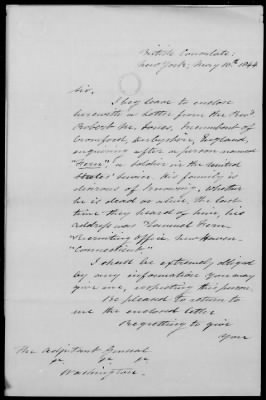 British Consulate;
New York; May 18th 1844
Sir.
I beg leave to enclose
herewith a letter from the Revd
Robert M. Jones, Incumbent of
Cromford, Derbyshire, England,
enquiring after a person named
"Fern", a Soldier in the United
States' service. His family is
desirous of knowing, whether
he is dead or alive. The last
time they heard of him, his
address was "Samuel Fern
Recruiting Office New Haven
"Connecticut"
I shall be extremely obliged
by any information you may
give me, respecting this person.
Be pleased to return to
me the enclosed letter
Regretting to give
you
The Adjutant General
Washington.